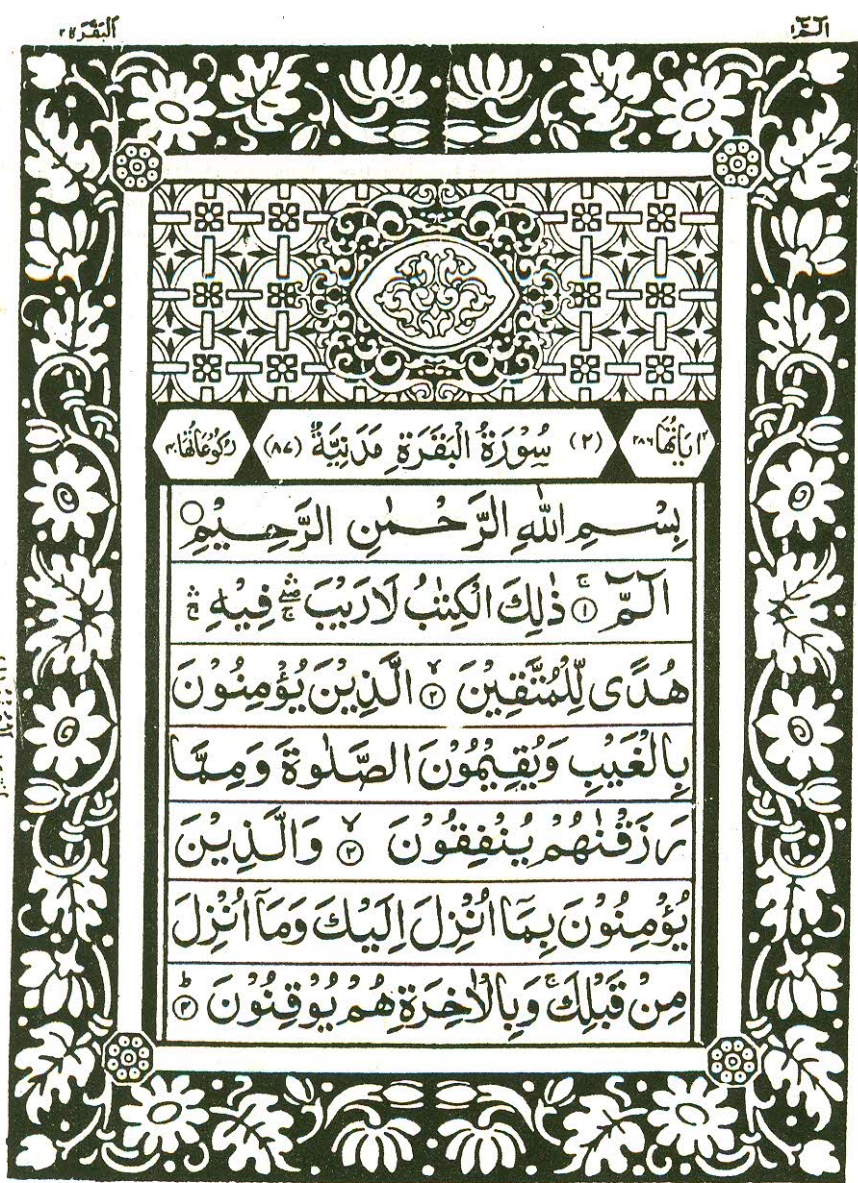 الٓمّٓ ١
البقرة ٢
اٰیَاتُهَا ٢٨٦
(٢) سُوْرَةُ الْبَقَرَةِ مَدَنِیَّةٌ (٨٧)
رُكُوْعَاتُهَا ٤٠
بِسْمِ اللّٰهِ الرَّحْمٰنِ الرَّحِیْمِ ○
الٓمّٓ ۚ ① ذٰلِكَ الْكِتٰبُ لَا رَیْبَ ۛۖۚ فِیْهِ ۛۚ
هُدًی لِّلْمُتَّقِیْنَ ② الَّذِیْنَ یُؤْمِنُوْنَ
بِالْغَیْبِ وَیُقِیْمُوْنَ الصَّلٰوةَ وَمِمَّا
رَزَقْنٰهُمْ یُنْفِقُوْنَ ③ وَالَّذِیْنَ
یُؤْمِنُوْنَ بِمَاۤ اُنْزِلَ اِلَیْكَ وَمَاۤ اُنْزِلَ
مِنْ قَبْلِكَ ۚ وَبِالْاٰخِرَةِ هُمْ یُوْقِنُوْنَ ④ؕ